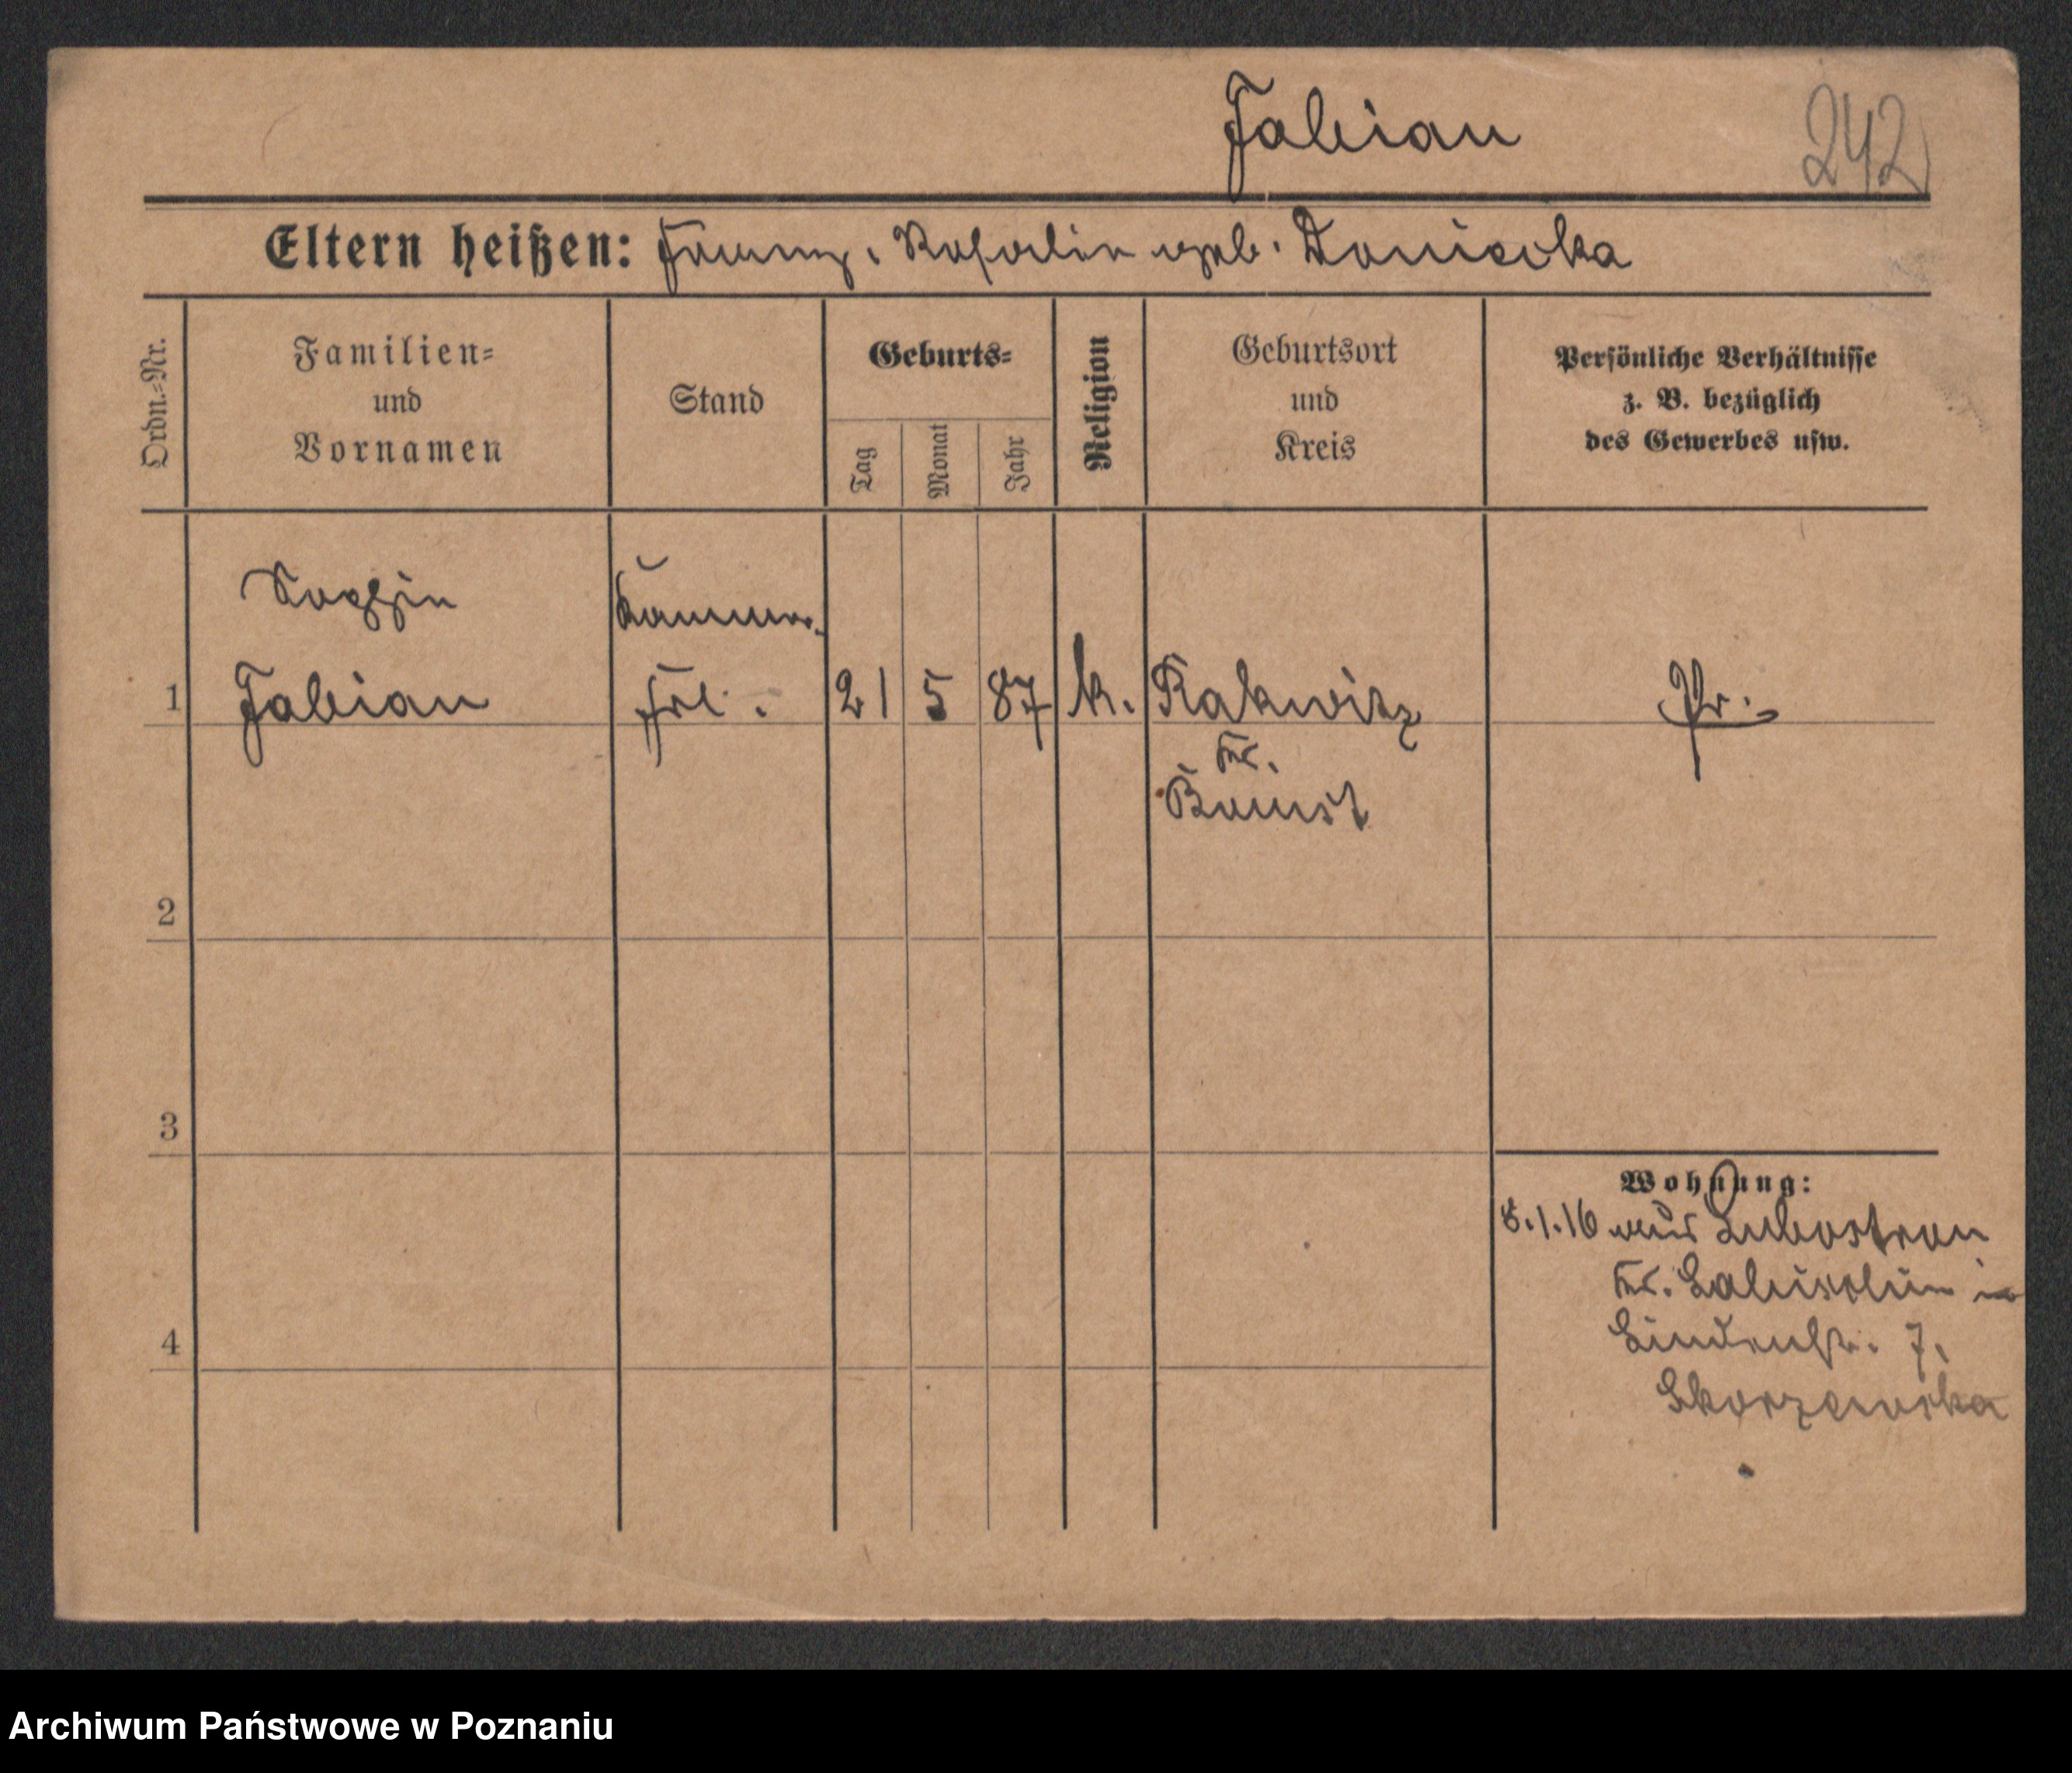 Fabian
242
Eltern heißen: Franz, Rosalie geb. Daniecka
Ordn.-Nr.
Familien-
und
Vornamen
Stand
Geburts-
Tag
Monat
Jahr
Religion
Geburtsort
und
Kreis
Persönliche Verhältnisse
z. B. bezüglich
des Gewerbes usw.
Sophie Kammer.
1 Fabian Frl. 21 5 87 k. Rakwitz Pr.
Kr.
Bomst
2
3
4
Wohnung:
8.1.16 aus Lubostron
Kr. Labischin in
Lindenstr. 7.
Skorzewska
Archiwum Państwowe w Poznaniu